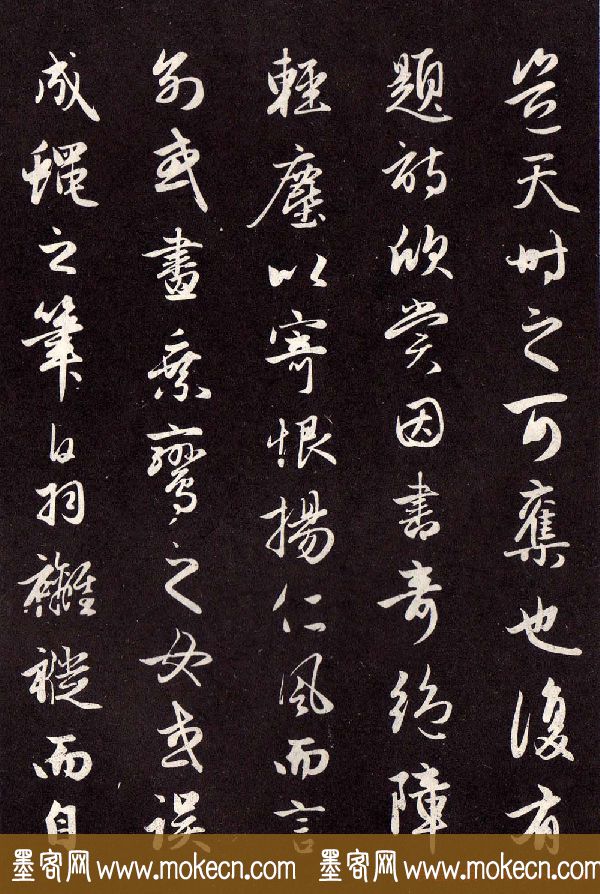 豈天時之可奪也復有
題詩欣賞因書奇絕障
輕塵以寄恨揚仁風而言
別或畫乘鸞之女或誤
成蠅之筆白羽褷而自
墨客网 www.mokecn.com 墨客网 www.mokecn.com